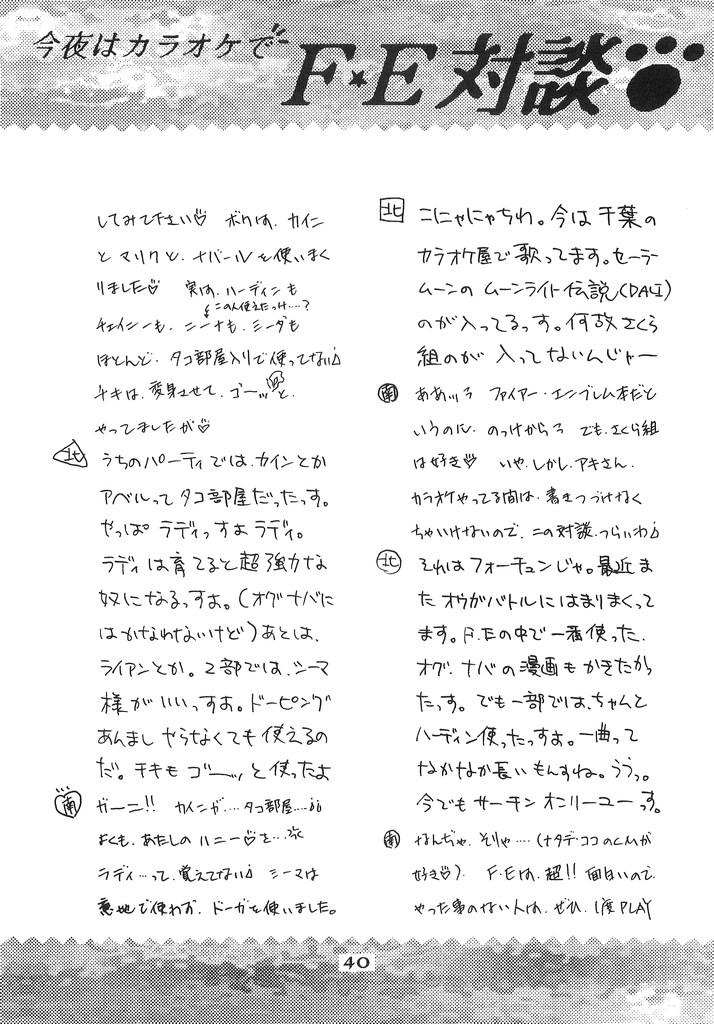 今夜はカラオケで
F★E対談
北 こにゃにゃちわ。今は千葉の
カラオケ屋で歌ってます。セーラー
ムーンの ムーンライト伝説(DALI)
のが入ってるっす。何故さくら
組のが 入ってないんじゃー
南 ああッろ ファイアー・エンブレム本だと
いうのに、のっけからろ でも、さくら組
は好き♡ いや、しかし、アキさん、
カラオケやってる間は、書きつづけなく
ちゃいけないので、この対談、つらいわ♪
北 それはフォーチュンじゃ。最近ま
たオウガバトルにはまりまくって
ます。F.Eの中で一番使った、
オグ、ナバの漫画もかきたかっ
たっす。でも一部では、ちゃんと
ハーディン使ったっすよ。一曲って
なかなか長いもんすね。ううっ。
今でもサーチンオンリーユーっす。
南 なんぢゃ、そりゃ‥‥(ナタデ・ココのCMが
好き♡)、 F・Eは、超!!面白いので、
やった事のない人は、ぜひ、1度PLAY
してみて下さい♡ ボクは、カイン
と マリクと、ナバールを使いまく
りました♡ 実は、ハーディンも
このん使えたっけ‥‥?
チェイニーも、ニーナも、ミーダも
ほとんど、タコ部屋入りで使ってない♪
チキは、変身させて、ゴーッと、
やってましたが♡
北 うちのパーティでは、カインとか
アベルって タコ部屋だったっす。
やっぱ ラディっすよ ラディ。
ラディは育てると超強力な
奴になるっすよ。(オグナバに
はかなわないけど)あとは、
ライアンとか。2部では、シーマ
様がいいっすよ。ドーピング
あんまし やらなくても 使えるの
だ。チキも ゴーッ と使ったよ
南 ガーニ!! カインが‥‥タコ部屋‥‥
よくも、あたしの ハニー♡を‥
ラディ‥‥って、覚えてない♪ シーマは
意地で使わず、ドーガを使いました。
40